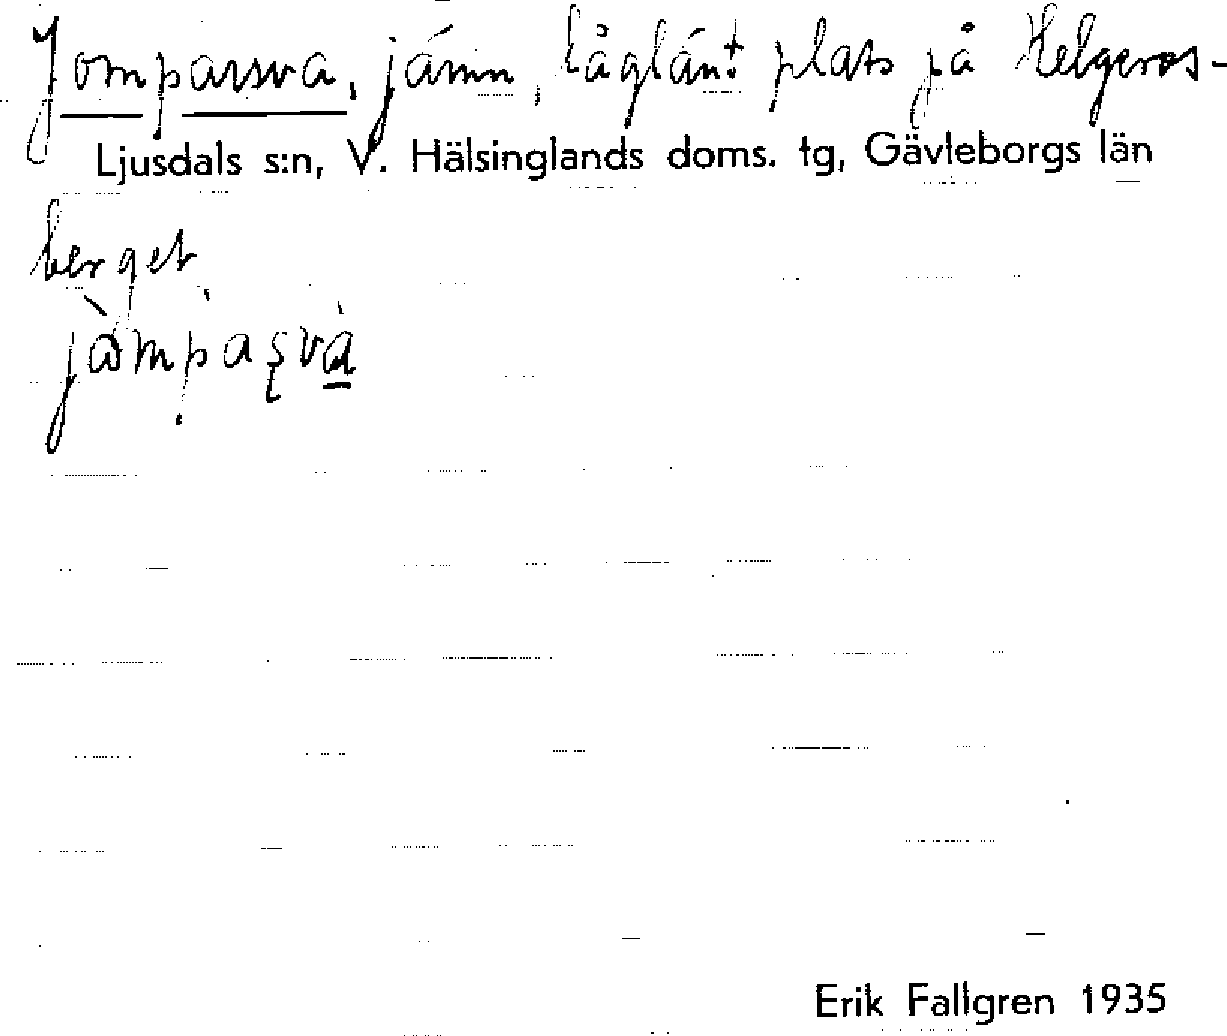 Jomparsva, jämn, låglänt plats på Helgeros-
Ljusdals s:n, V. Hälsinglands doms. tg, Gävleborgs län
berget.
Erik Fallgren 1935